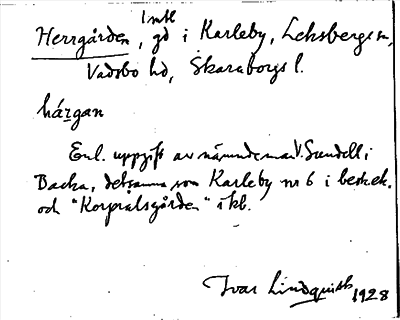 Inkl
Herrgården, gd i Karleby, Leksbergs sn,
Vadsbo hd, Skaraborgs l.
hárgan
Enl. uppgift av nämndeman V. Sundell i
Backa, detsamma som Karleby nr 6 i beskek.
och "Korpralsgården" i kb.
Ivar Lindquist 1928